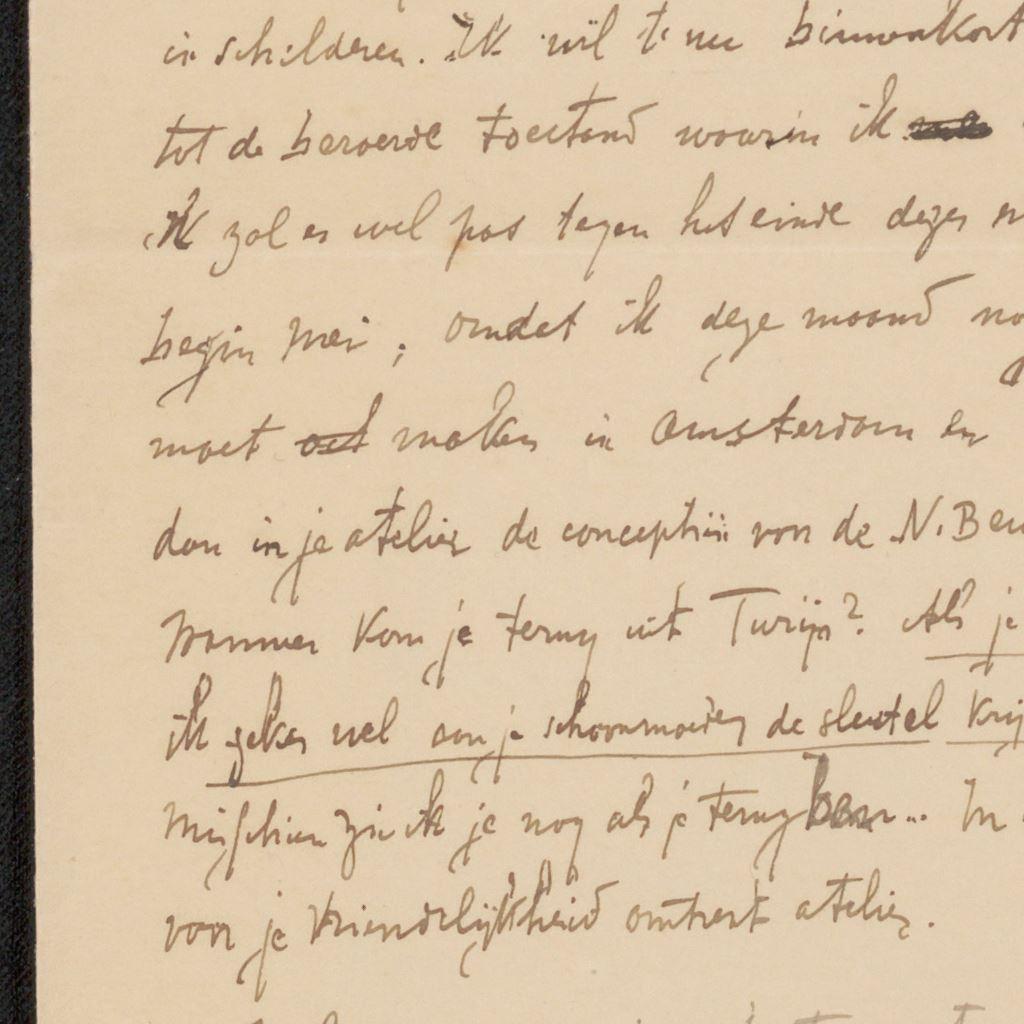 in schilderen. Ik wil t nu binnenkort
tot de beroerde toestand waarin ik
Ik zal er wel pas tegen het einde dezer
begin Mei, omdat ik deze maand
moet maken in Amsterdam en
dan in je atelier de conceptie van de N. Beu
Wanneer kom je terug uit Turijn? Als je
ik zeker wel aan je schoonmoeder de sleutel
Misschien zie ik je nog als je terug ben... In
voor je vriendelijkheid omtrent atelier.